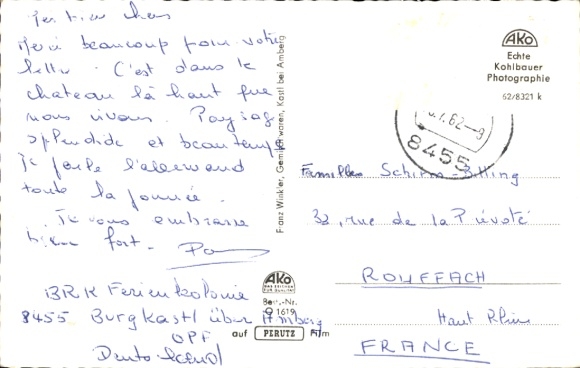 Mes biens chers
Merci beaucoup pour votre
lettre. C'est dans le
chateau là haut que
nous vivons. Paysage
splendide et beau temps
je parle l'allemand
toute la journée.
Je vous embrasse
bien fort -
BRK Ferienkolonie
8455 Burgkastl über Amberg
OPF
Deutschland
Franz Winkler, Gemischtwaren, Kastl bei Amberg
AKO
Echte
Kohlbauer
Photographie
62/8321 k
.7.62-8
8455
Familles Schirm-Billing
32, rue de la Prévoté
ROUFFACH
Haut Rhin
FRANCE
AKO
DAS ZEICHEN
FÜR QUALITÄT
Best.-Nr.
O 1619
auf PERUTZ Film